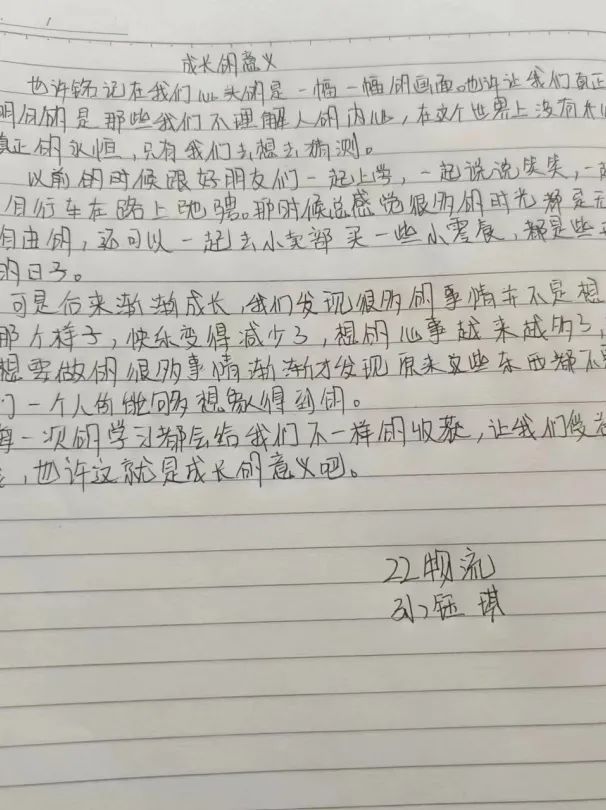 成长的意义
也许铭记在我们心头的是一幅一幅的画面。也许让我们真正
明白的是那些我们不理解人的内心,在这个世界上没有什么
真正的永恒,只有我们去想去猜测。
以前的时候跟好朋友们一起上学,一起说说笑笑,一
自行车在路上驰骋。那时候总感觉很多的时光都是无
自由的,还可以一起去小卖部买一些小零食,都是些
的日子。
可是后来渐渐成长,我们发现很多的事情并不是想
那个样子,快乐变得减少了,想的心事越来越多了,
想要做的很多事情渐渐才发现原来这些东西都不是
们一个人的能够想象得到的。
每一次的学习都会给我们不一样的收获,让我们
,也许这就是成长的意义吧。
22物流
孙钰琪